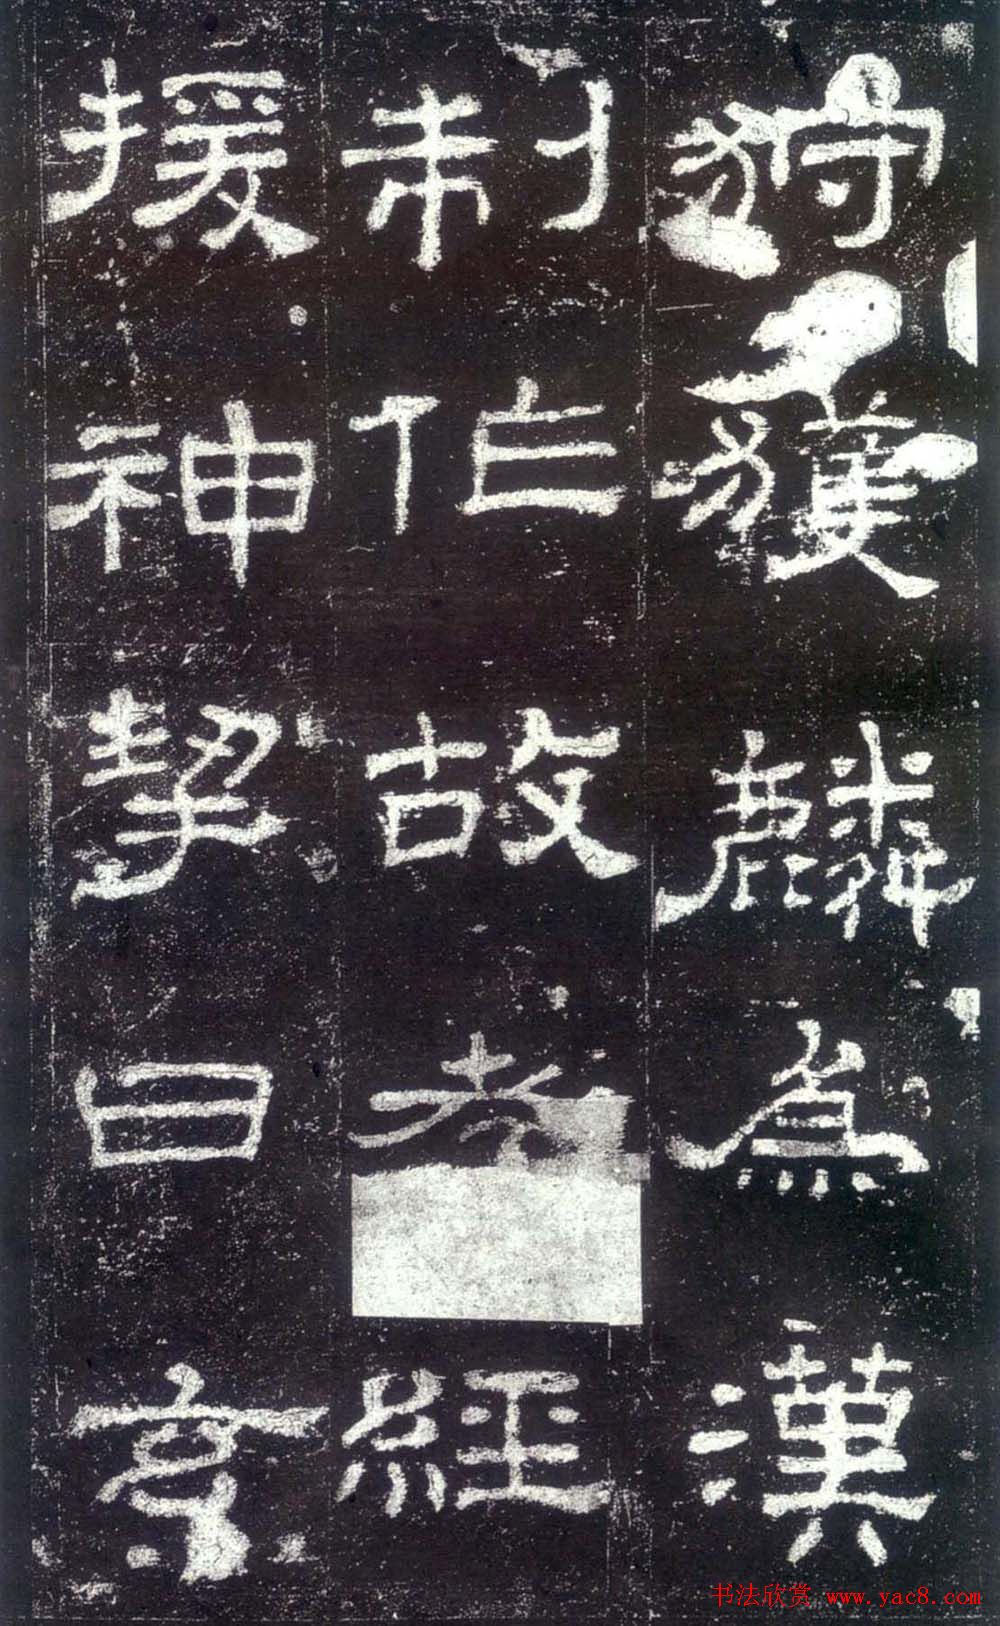 狩獲麟為漢
制作故孝經
援神挈曰玄
书法欣赏 www.yac8.com